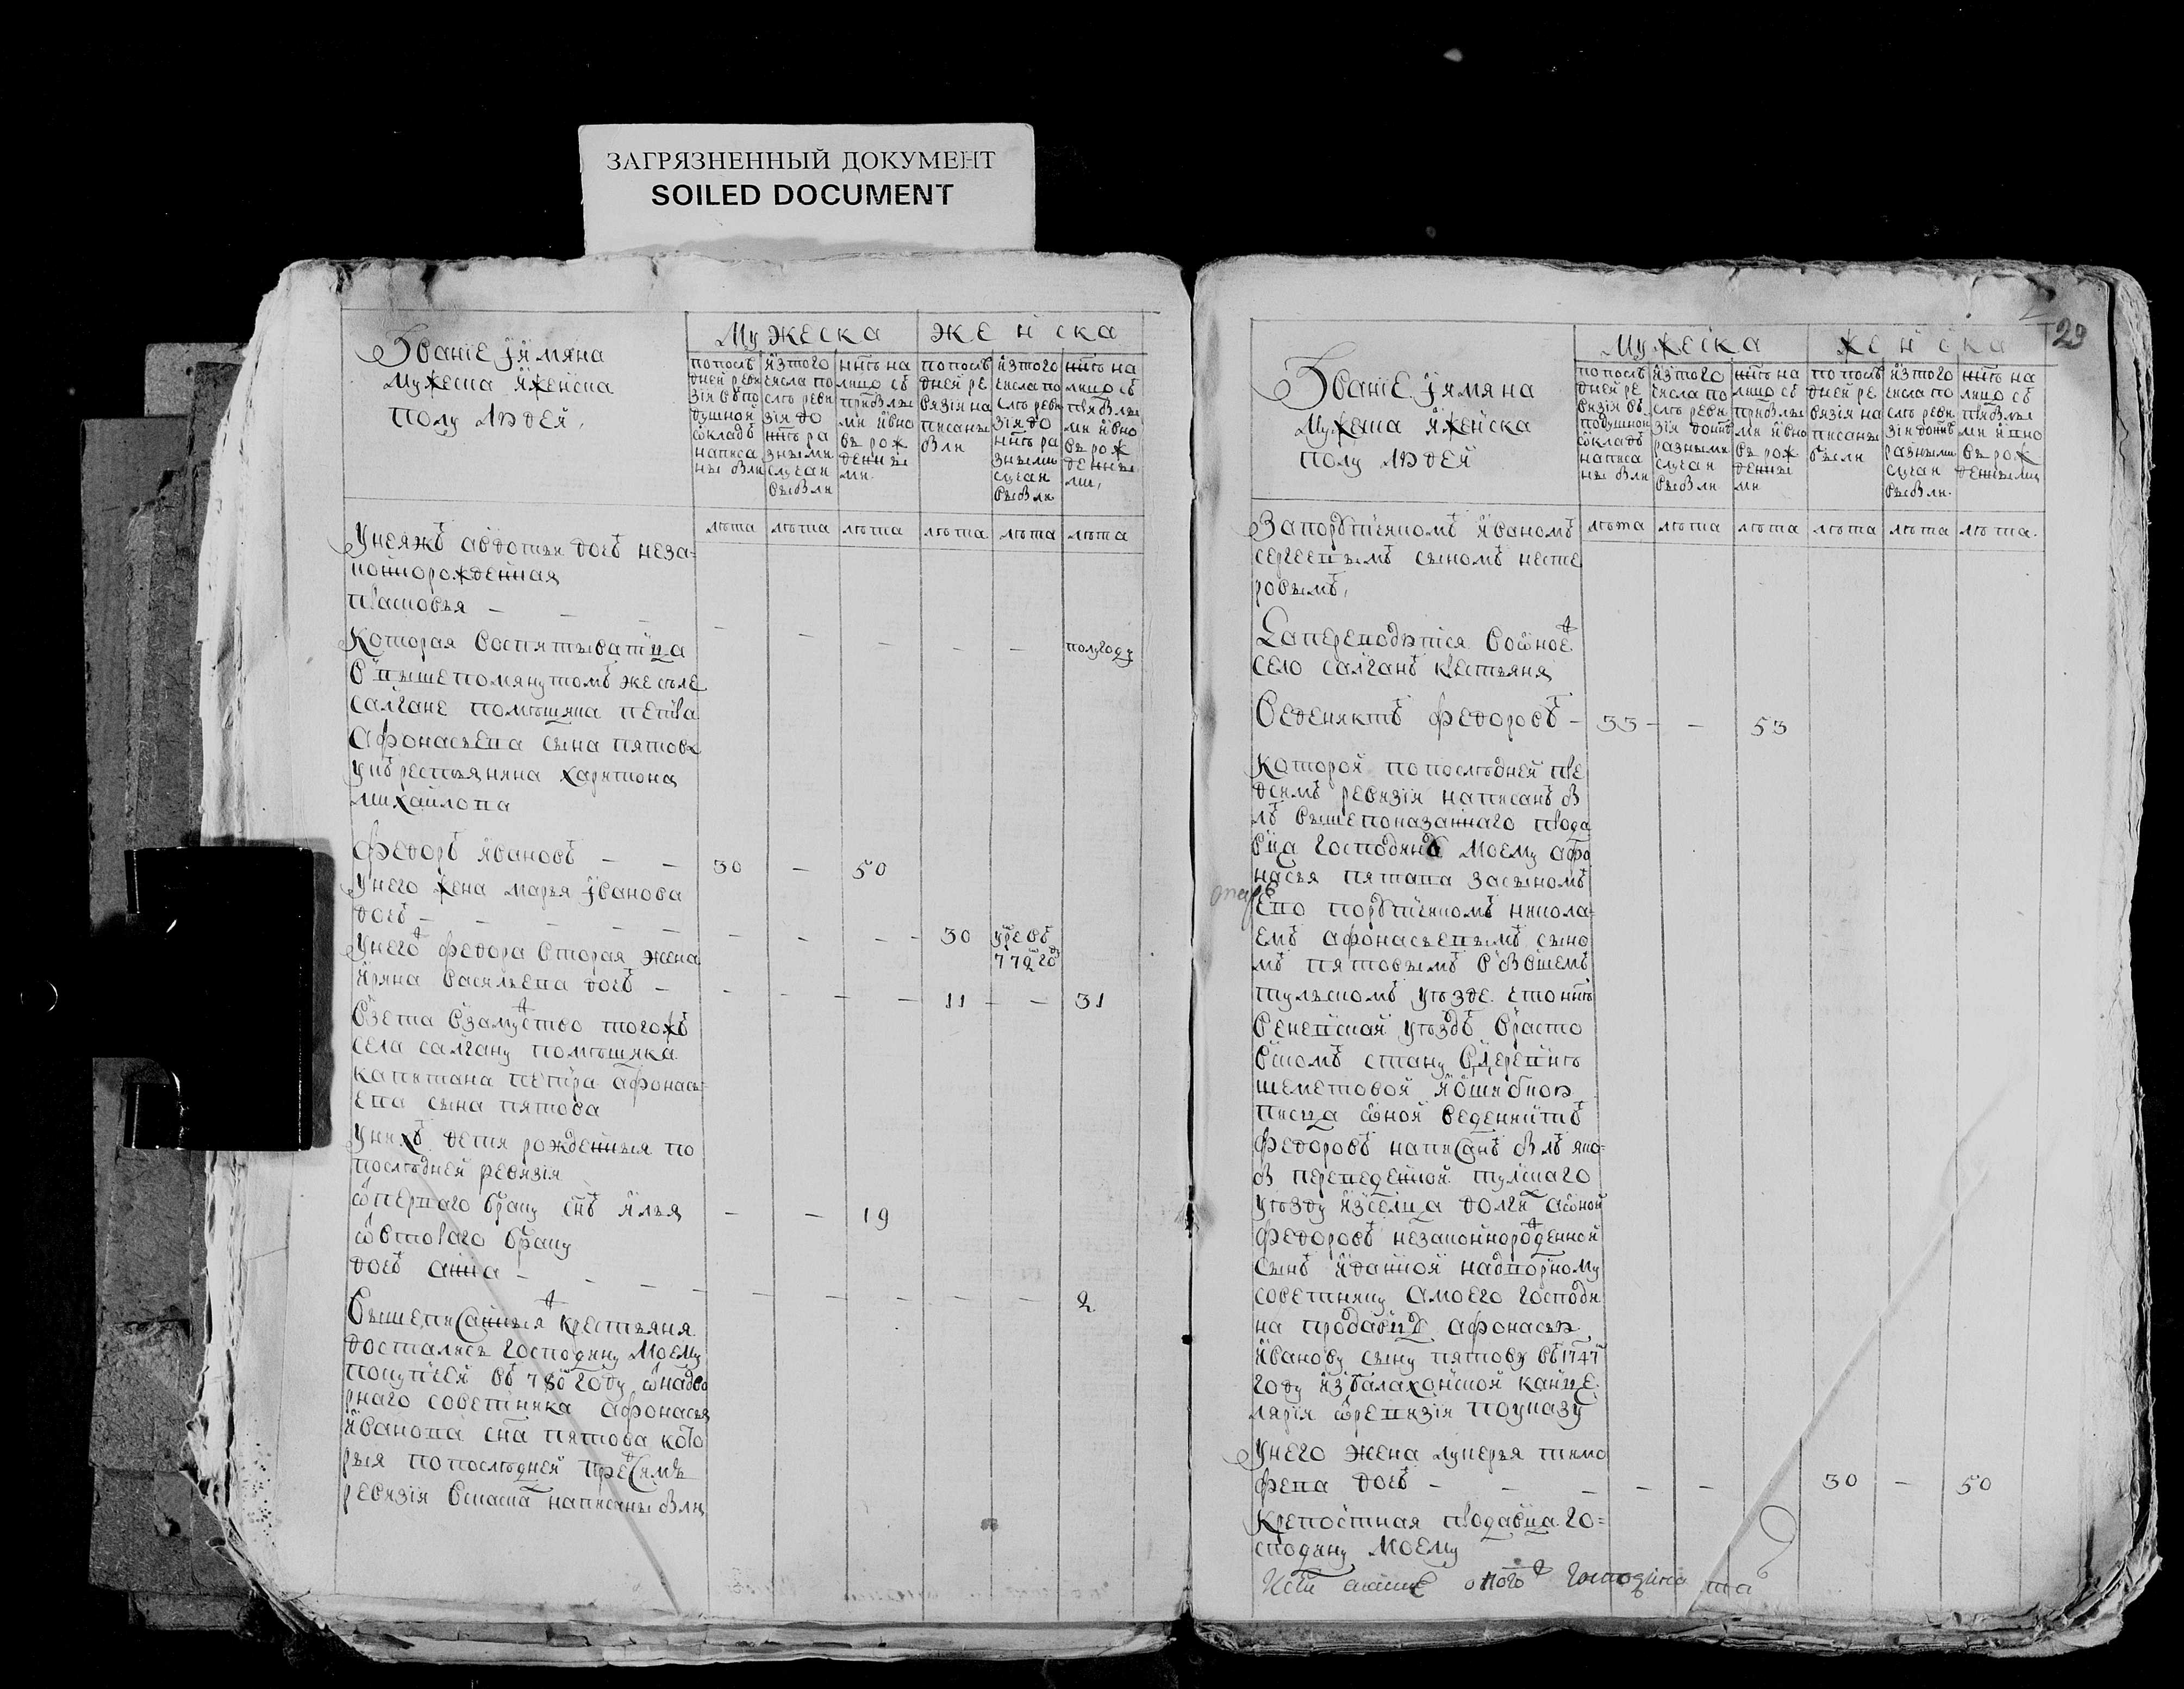 ЗАГРЯЗНЕННЫЙ ДОКУМЕНТ
SOILED DOCUMENT
Званіе ї имяна
мужеска и женска
полу людей
Мужеска
женска
по послѣ дней реви зіи въ по душной ѡкладъ написа ны были
изтого числа по слѣ реви зіи до ннѣ ра зными случаи выбыли
ннѣ на лицо съ прибылы ми и вно вь рож денны ми
по послѣ дней ре визіи на писаны были
изтого числа по слѣ реви зіи до ннѣ ра зными случаи выбыли
ннѣ на лицо съ прибылы ми и вно вь рож денны ми
лѣта лѣта лѣта лѣта лѣта лѣта
У неяжъ авдотьи дочь неза-
коннорожденная
прасковья - - - - - - - полугоду
Которая воспитываетца
в вышепомянутомъ же селе
салгане помѣщика петра
Афонасьева сына пятова
у крестьянина харитона
михаилова
Федоръ ивановъ - - 30 - 50
У него жена марья їванова
дочь - - - - - - - 30 умре въ
772 го
У него федора вторая жена
ирина васильева дочь - - - - - 11 - - 31
Взета взамуство тогожъ
села салгану помѣщика
капитана петра афонась-
ева сына пятова
У нихъ дети рожденныя по
последней ревизіи
ѿ перваго браку снъ илья - - 19
ѿ втораго браку
дочь анна - - - - - - - - 2
Вышеписанныя крестьяня
достались господину моему
покупкей въ 780 году ѿ надво
рнаго советника афонасья
иванова сна пятова кото
рыя по последней пред симъ
ревизіи написаны были
29
Званіе ї имяна
мужеска и женска
полу людей
Мужеска
женска
по послѣ дней ре визіи въ подушной ѡкладъ написа ны были
изтого числа по слѣ реви зіи до ннѣ разными случаи выбыли
ннѣ на лицо съ прибылы ми и вно вь рож денны ми
по послѣ дней ре визіи на писаны были
изтого числа по слѣ реви зіи до ннѣ разными случаи выбыли
ннѣ на лицо съ прибылы ми и вно вь рож денными
лѣта лѣта лѣта лѣта лѣта лѣта
За порутчикомъ иваномъ
сергеевымъ сыномъ несте
ровымъ
село салганъ крестьяня
Веденихтъ федоровъ - 33 - - 53
Которой по последней пре
дсимъ ревизіи написанъ бы
лъ вышепоказаннаго прода
вца господину моему афо
насья пятава за сыномъ
ево порутчикомъ никола-
емъ афонасьевымъ сыно
мъ пятовымъ в бывшемъ
тульскомъ уезде что ннѣ
веневской уездъ врасто
вскомъ стану в деревне
шеметовой и ошибкою
писца ѡной веденихтъ
федоровъ написанъ былъ яко-
бы переведенной тулскаго
уезду из селца долги а ѡной
федоровъ незаконнорожденной
сынъ и данной надворному
советнику а моего господи
на продавцу афонасью
иванову сыну пятову въ 1747
году из балахонской канце-
лярии ѿ ревизіи по указу
У него жена лукерья тимо
феева дочь - - - - - 30 - 50
Крепостная продавца го-
сподину моему